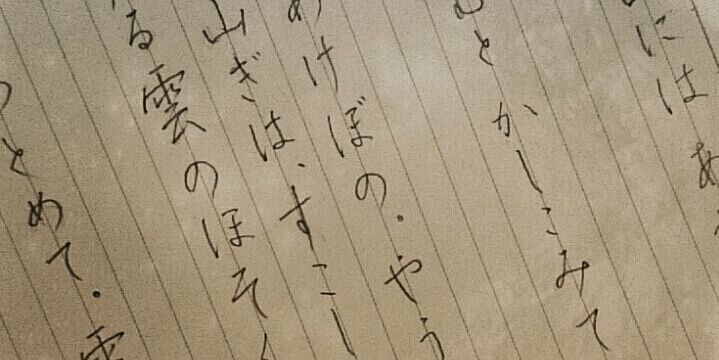 には あ
とかしこみて
あけぼの。やう
山ぎは、すこし
る雲のほそく
つとめて。雲